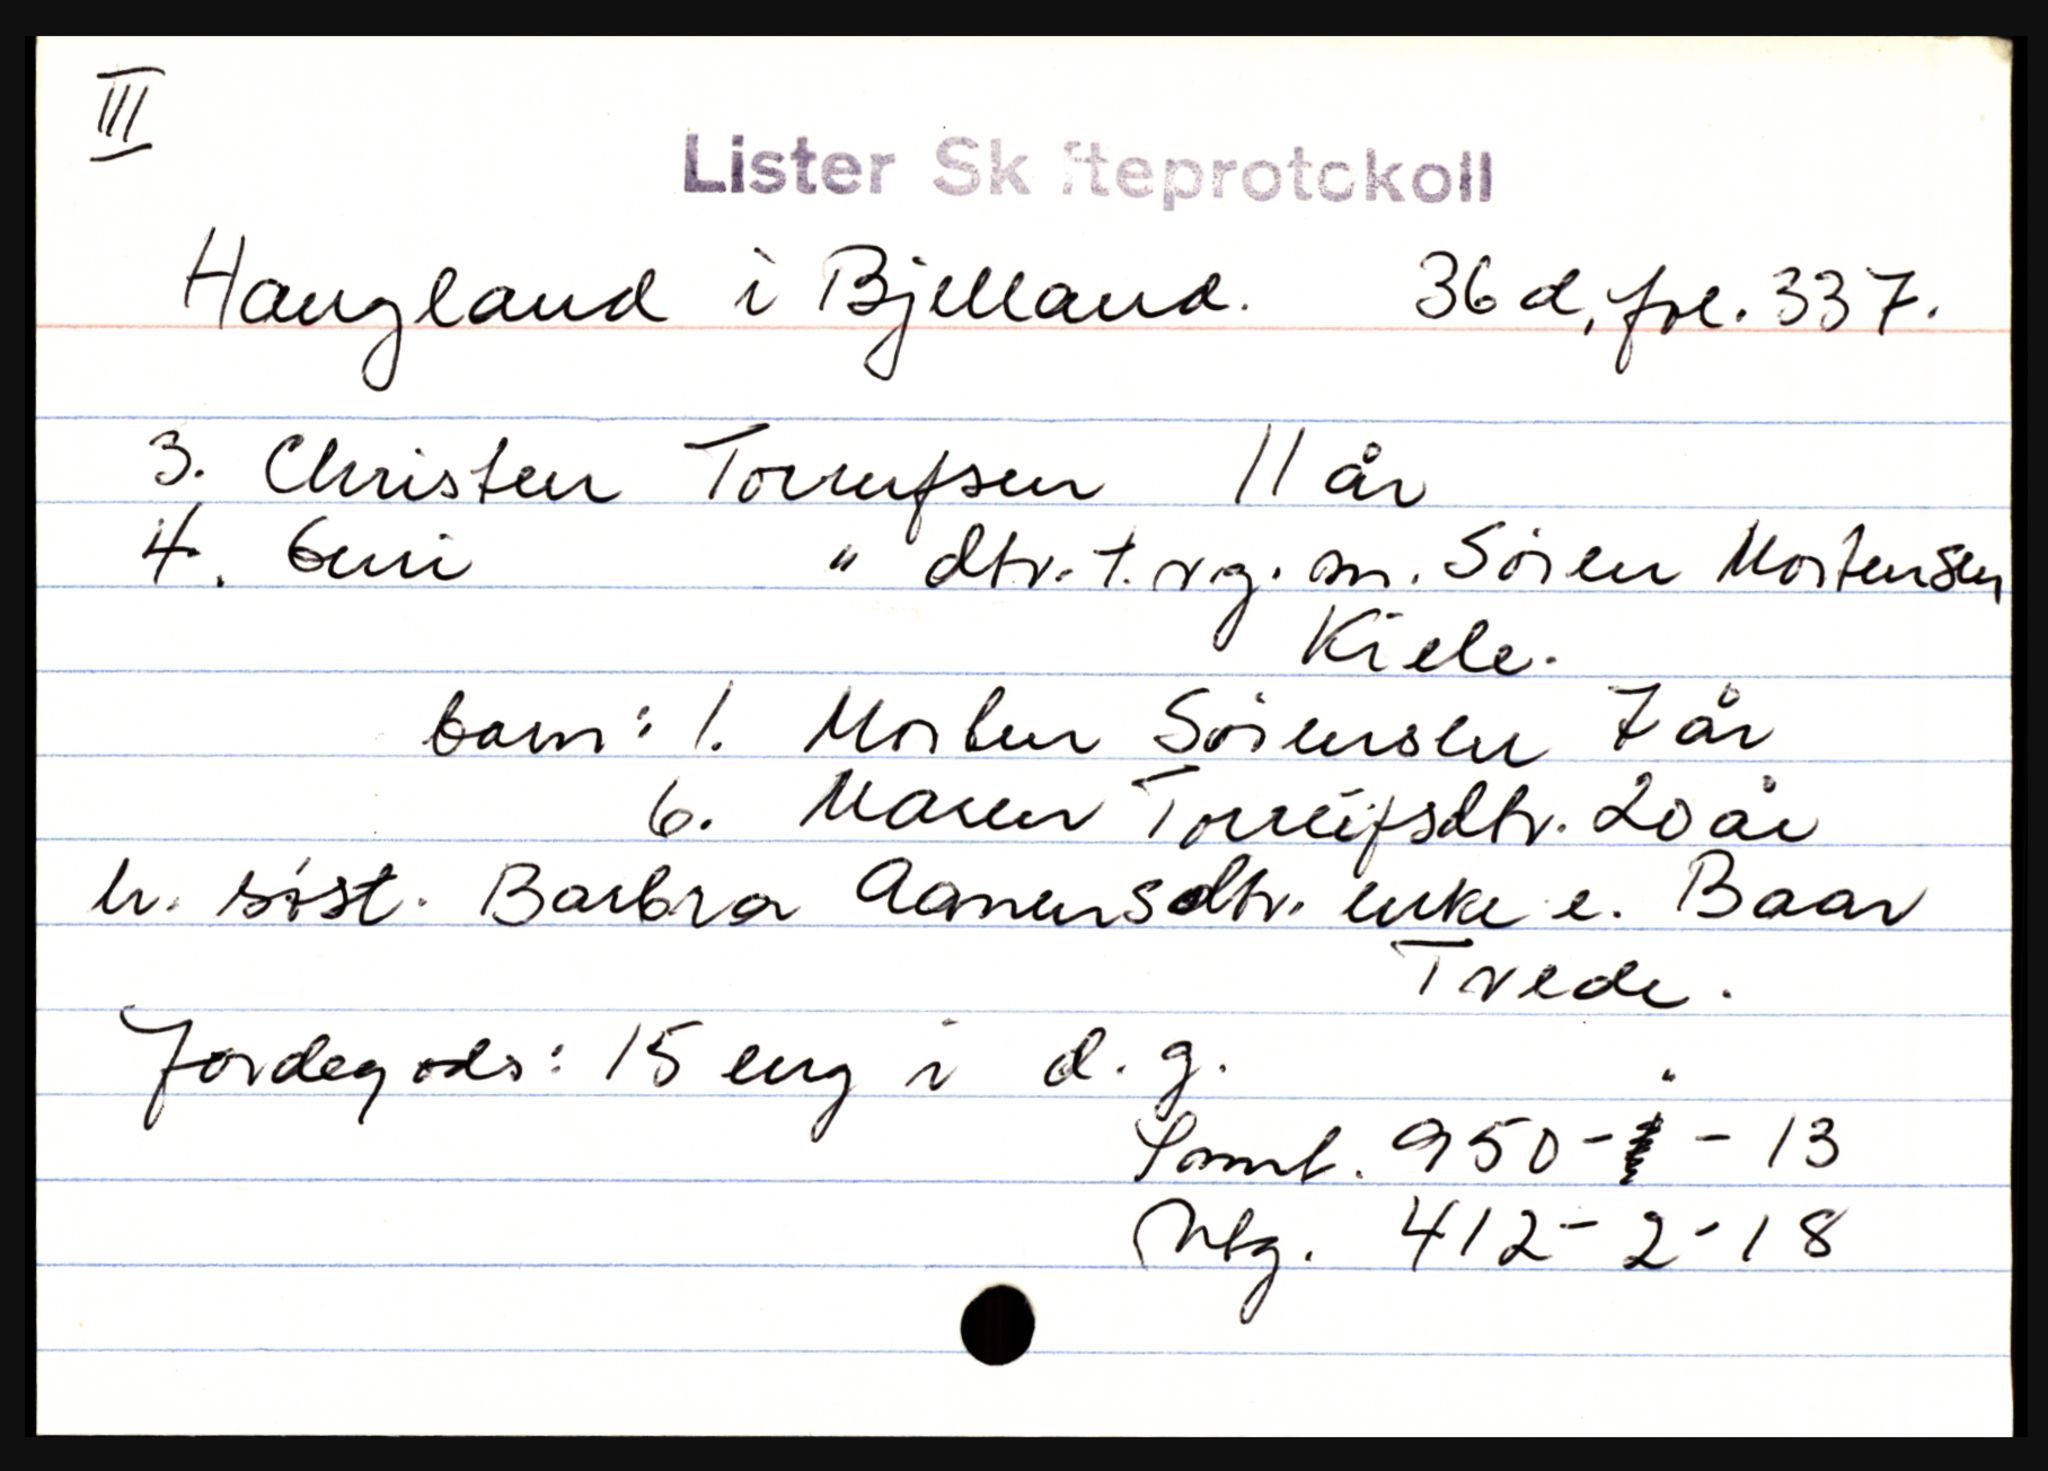 III
Lister Skifteprotokoll
Haugland i Bjelland. 36 d, fol. 337.
3. Christen Torreifsen 11 år
4. Guri " dtr. t. vg. m. Sören Mortensen
Kiele.
barn: 1. Morten Sörensen 7 år
6. Maren Torreifsdtr. 20 år
h. søst. Barbra Aanensdtr. enke e. Baar
Tvede.
Jordegods: 15 eng i d. g.
Saml. 950 - - 13
Ntg. 412 - 2 - 18